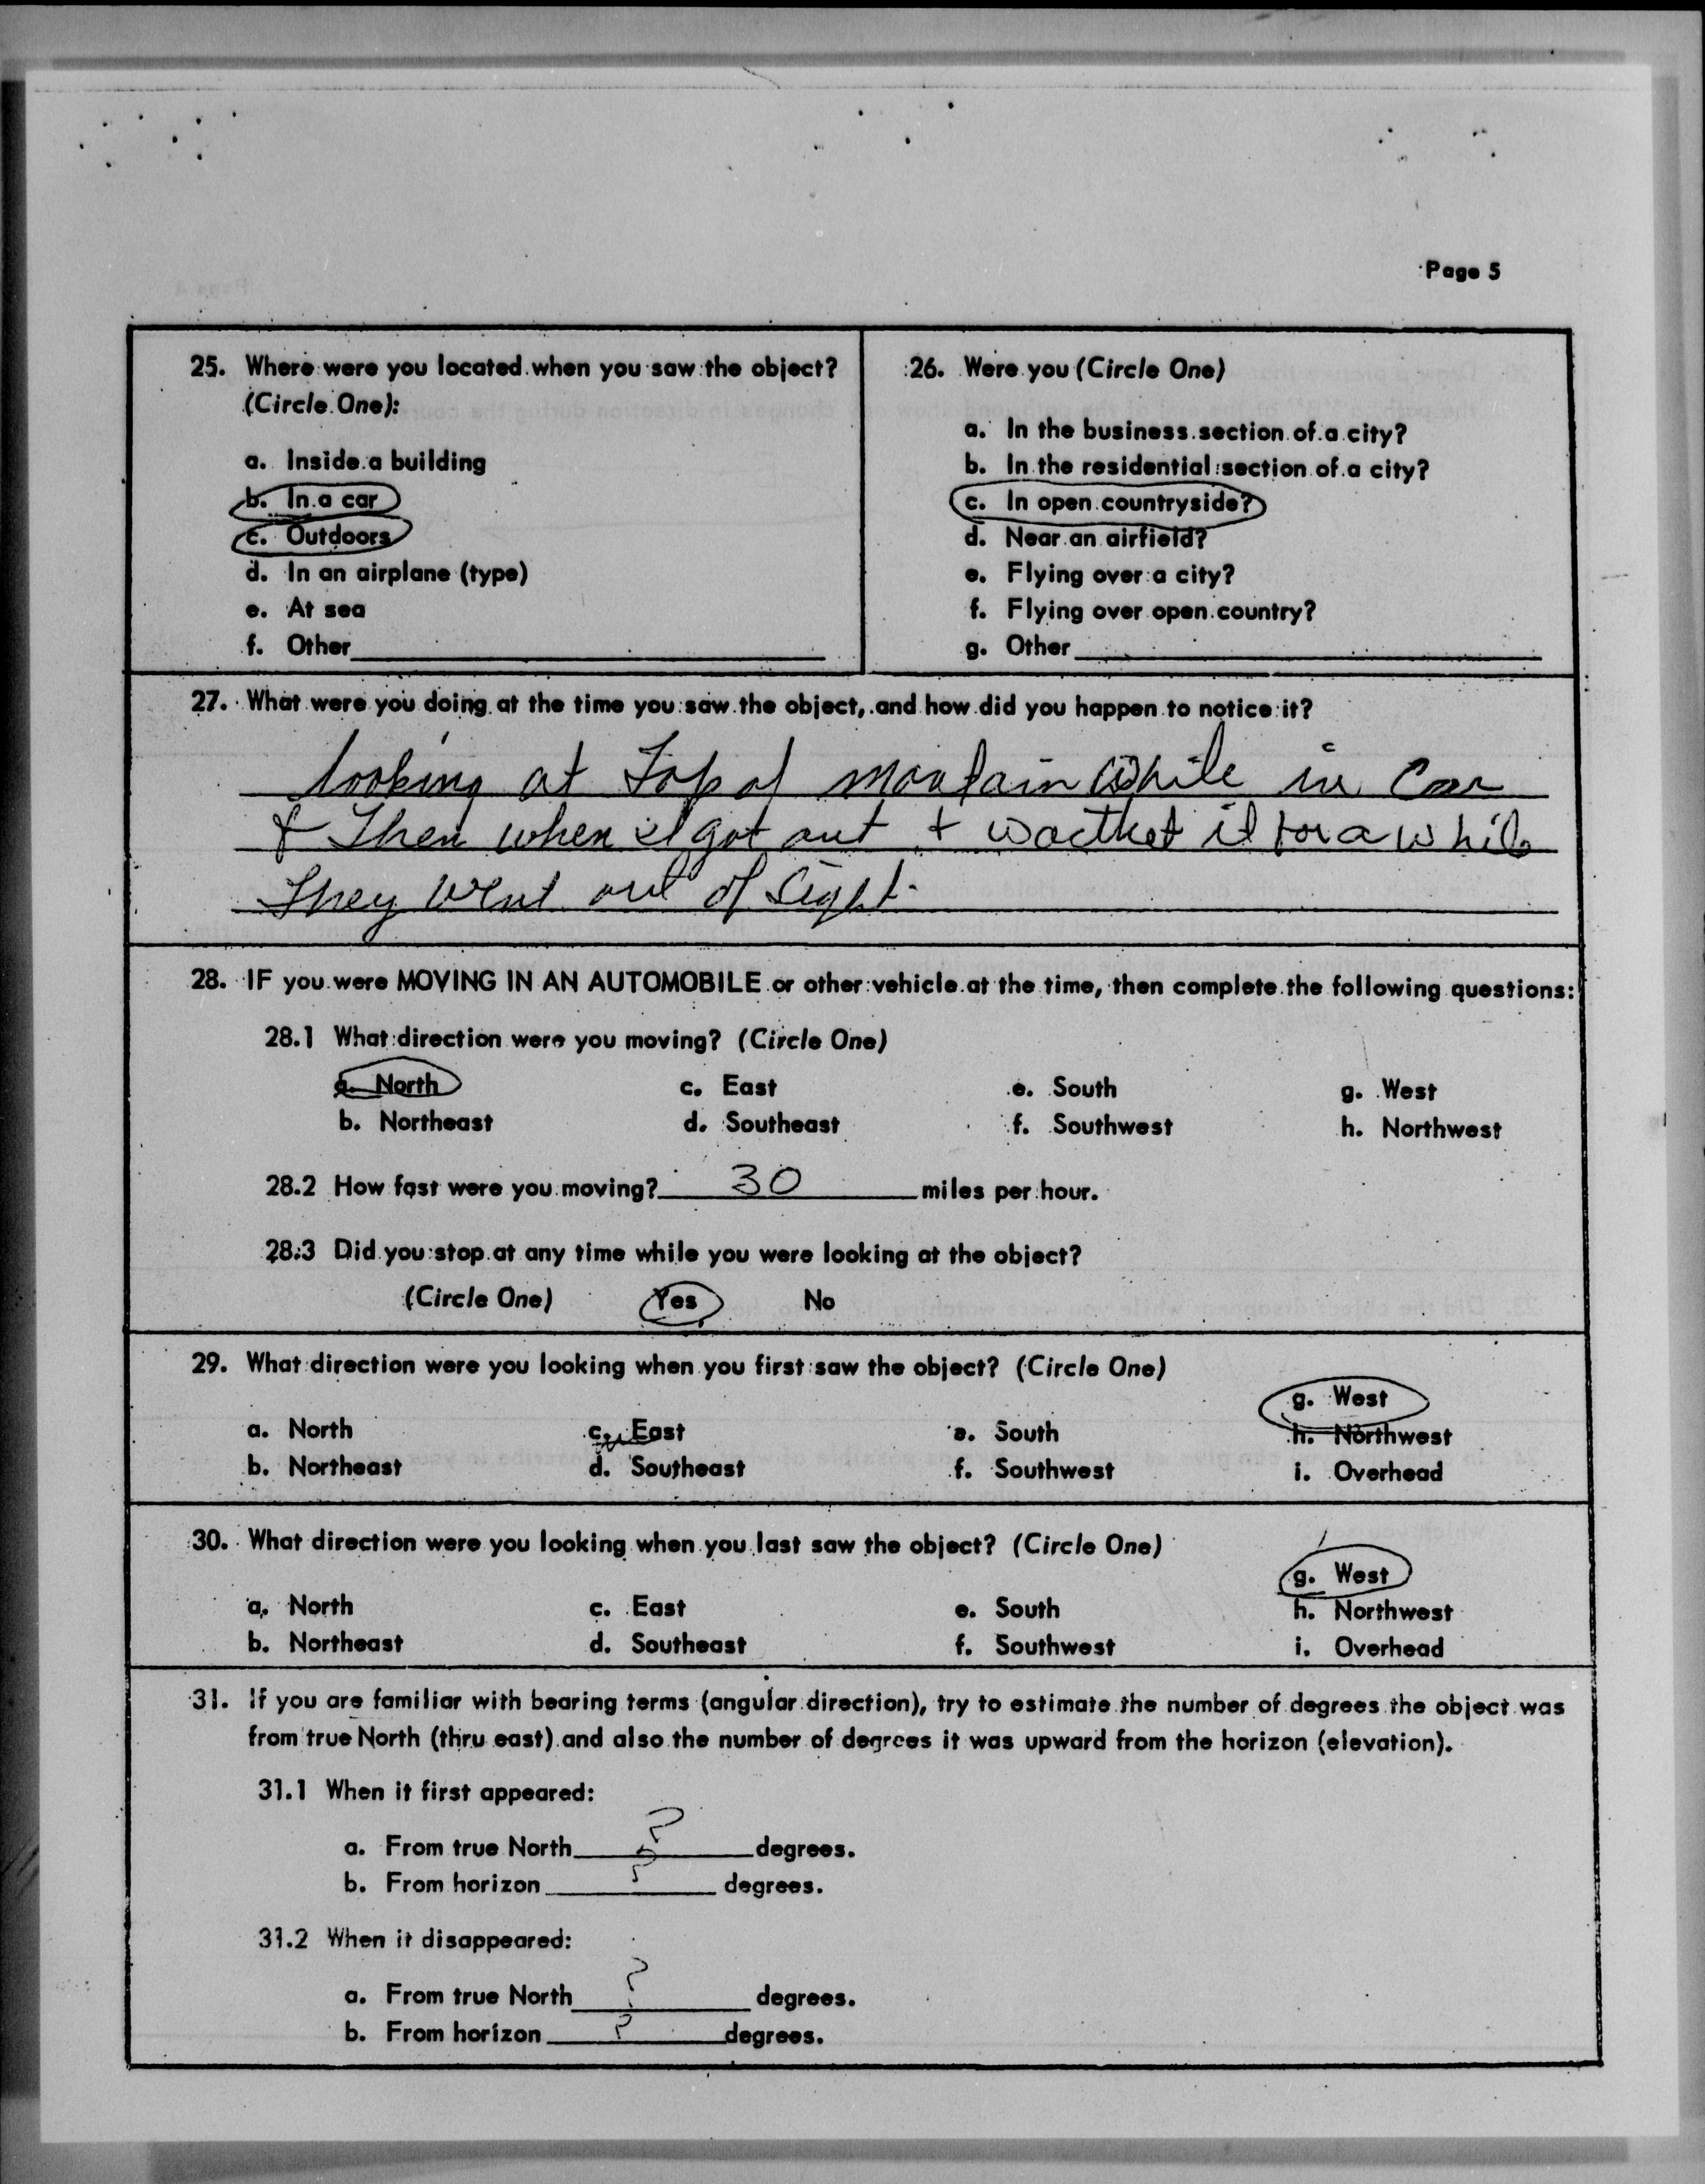 Page 5
25. Where were you located when you saw the object?
(Circle One):
a. Inside a building
b. In a car
c. Outdoors
d. In an airplane (type)
e. At sea
f. Other
26. Were you (Circle One)
a. In the business section of a city?
b. In the residential section of a city?
c. In open countryside?
d. Near an airfield?
e. Flying over a city?
f. Flying over open country?
g. Other
27. What were you doing at the time you saw the object, and how did you happen to notice it?
looking at Top of mountain while in Car
& Then when I got out + wactket it for a while
They went out of Sight.
28. IF you were MOVING IN AN AUTOMOBILE or other vehicle at the time, then complete the following questions:
28.1 What direction were you moving? (Circle One)
a. North c. East e. South g. West
b. Northeast d. Southeast f. Southwest h. Northwest
28.2 How fast were you moving? 30 miles per hour.
28.3 Did you stop at any time while you were looking at the object?
(Circle One) Yes No
29. What direction were you looking when you first saw the object? (Circle One)
g. West
a. North c. East e. South h. Northwest
b. Northeast d. Southeast f. Southwest i. Overhead
30. What direction were you looking when you last saw the object? (Circle One)
g. West
a. North c. East e. South h. Northwest
b. Northeast d. Southeast f. Southwest i. Overhead
31. If you are familiar with bearing terms (angular direction), try to estimate the number of degrees the object was
from true North (thru east) and also the number of degrees it was upward from the horizon (elevation).
31.1 When it first appeared:
a. From true North ? degrees.
b. From horizon ? degrees.
31.2 When it disappeared:
a. From true North ? degrees.
b. From horizon ? degrees.